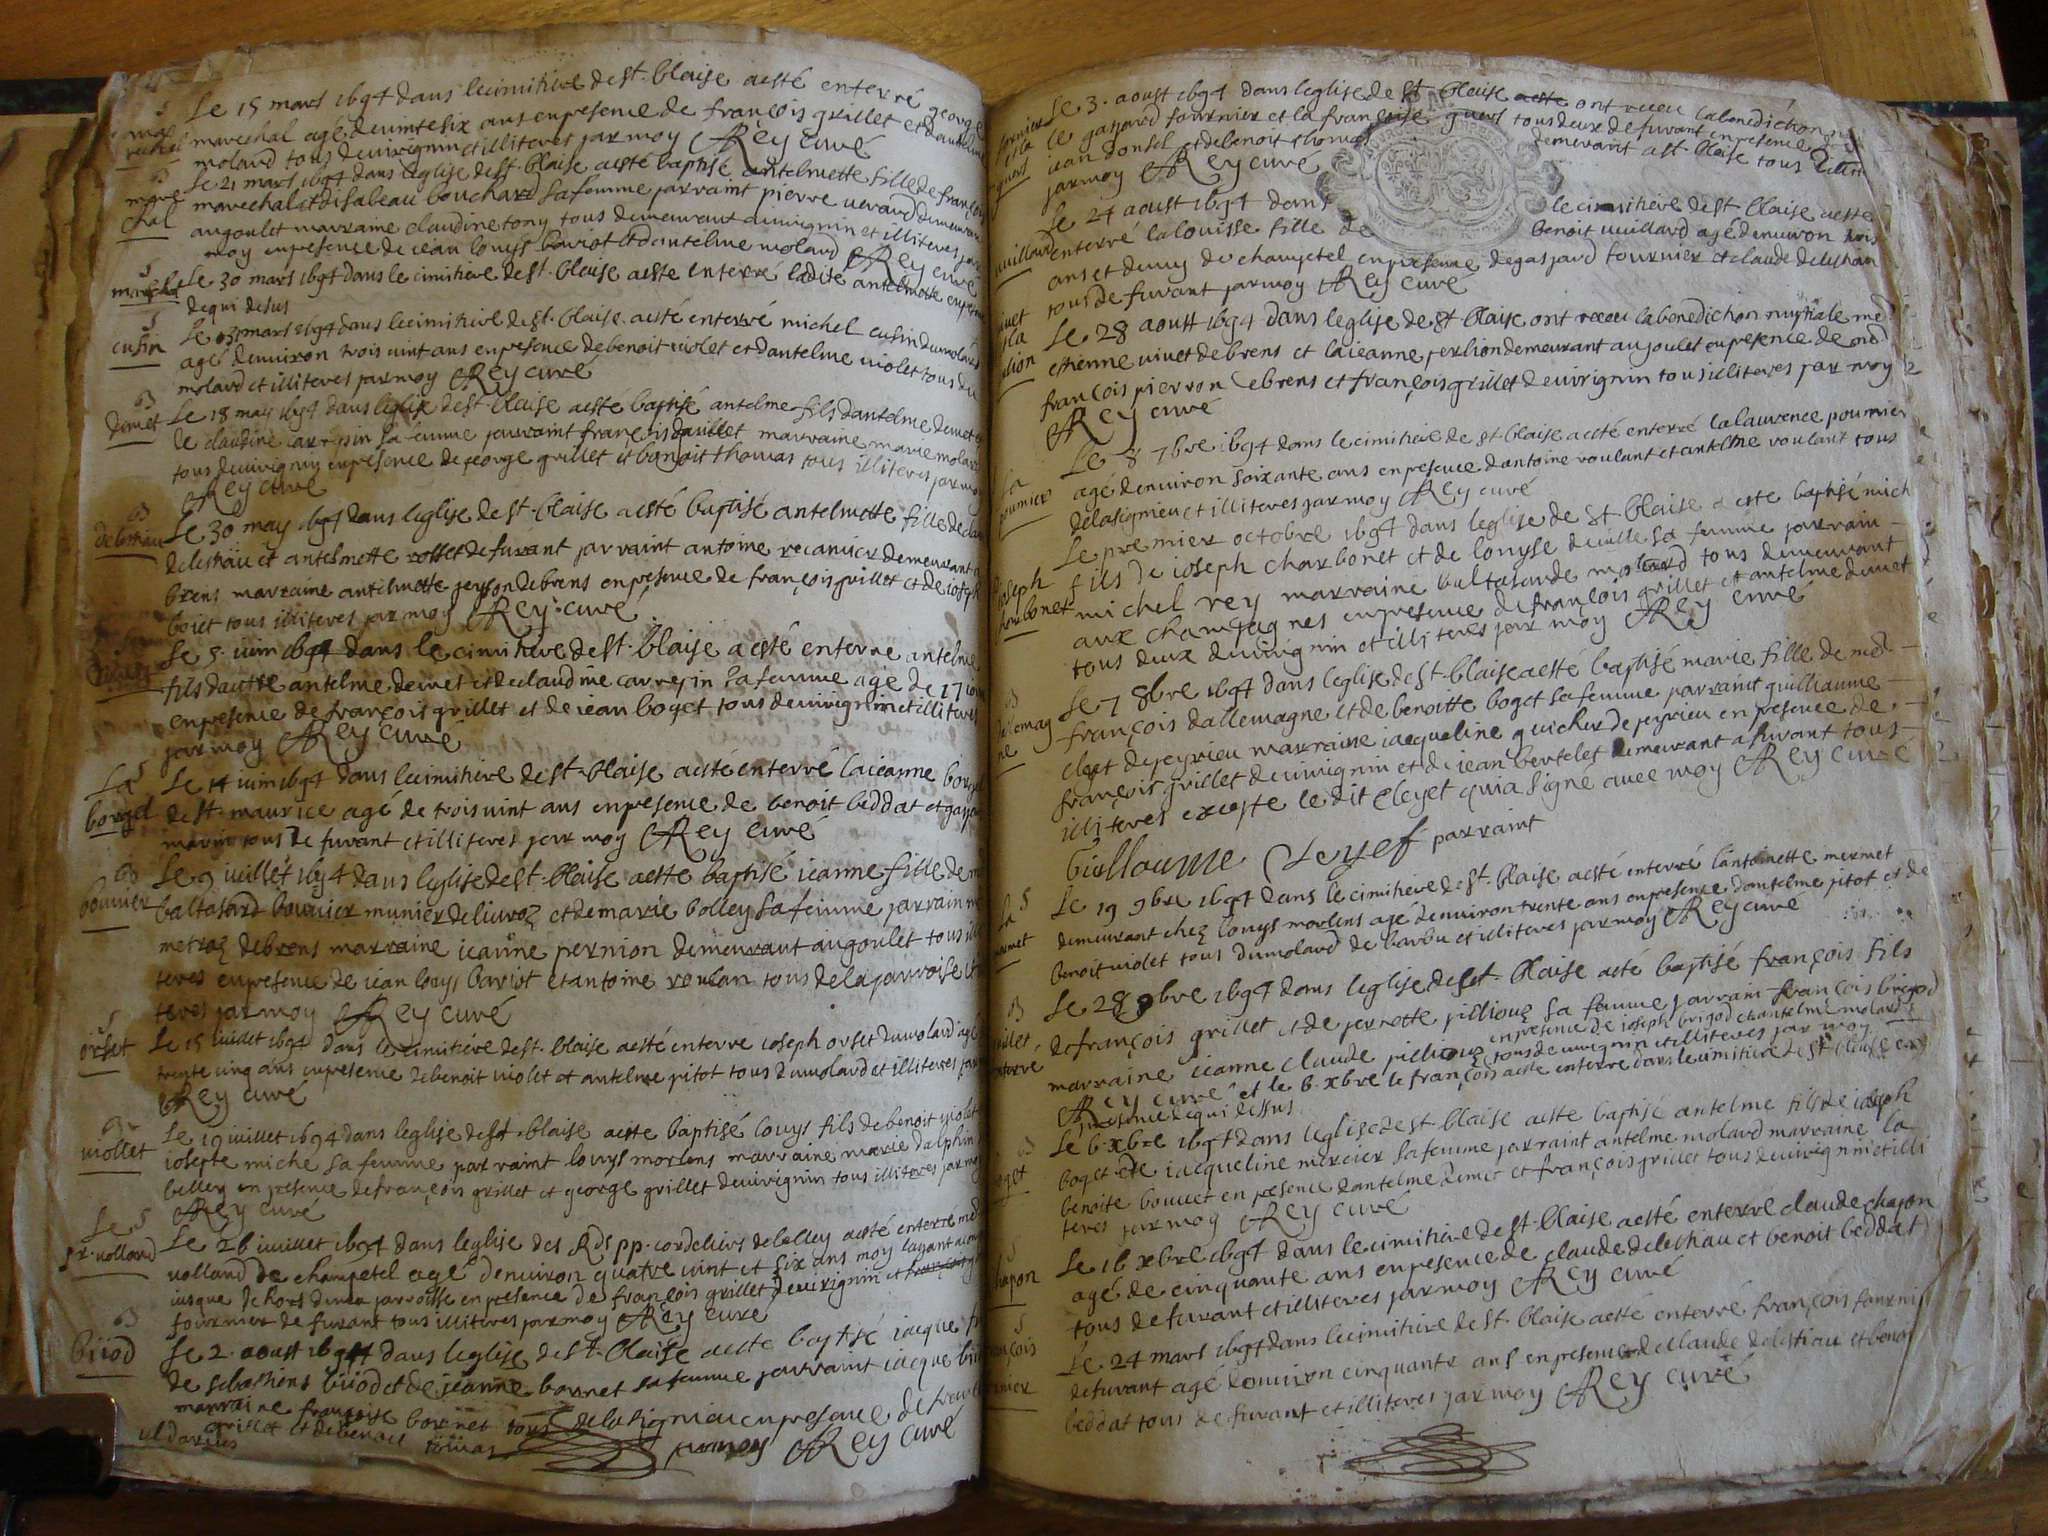 Le 15 mars 1694 dans le cimitiere de st. blaise a esté enterré george
marechal agé de vinte six ans en presence de françois grillet et dantelme
molard tous de virignin et illiteres par moy Rey curé
B
mare
chal
Le 21 mars 1694 dans leglise de st. blaise a esté baptisé antelmette fille de françois
marechal et disabeau bouchard sa femme parraint pierre verard demeurant
angoulet marraine claudine tony tous demeurant a virignin et illiteres par
moy en presence de iean louys bariot et dantelme molard Rey curé
S
marechal
Le 30 mars 1694 dans le cimitiere de st. blaise a esté enterré ladite antelmette en presence
de qui desus
S
cusin
Le 31 mars 1694 dans le cimitiere de st. blaise a esté enterré michel cusin du molard
agé denviron trois vint ans en presence de benoit violet et dantelme violet tous du
molard et illiteres par moy Rey curé
B
demet
Le 18 may 1694 dans leglise de st. blaise a esté baptisé antelme fils dantelme demet et
de claudine carresin sa femme parraint françois marraine marie molard
tous de virignin en presence de george grillet et benoit thomas tous illiteres par moy
Rey curé
B
delestiau
Le 30 may 1694 dans leglise de st. blaise a esté baptisé antelmette fille de claude
delestiau et antelmette rosset de furant parraint antoine recamier demeurant a
brens marraine antelmette person de brens en presence de françois grillet et de ioseph
boiet tous illiteres par moy Rey curé
Le 5 iuin 1694 dans le cimitiere de st. blaise a esté enterré antelme
fils dautre antelme demet et de claudine carresin sa femme agé de 17 iours
en presence de françois grillet et de iean boget tous de virignin et illiteres
par moy Rey curé
S
La
borgel
Le 14 iuin 1694 dans le cimitiere de st. blaise a esté enterré la ieanne borgel
de st. maurice agé de trois vint ans en presence de benoit beddat et gaspard
marin tous de furant et illiteres par moy Rey curé
B
bouvier
Le 9 iuillet 1694 dans leglise de st. blaise a esté baptisé ieanne fille de
baltasard bouvier munier de livroz et de marie bolley sa femme parrain
metraz de brens marraine ieanne pernion demeurant angoulet tous illi
teres en presence de iean louys bariot et antoine roulan tous de la parroise illi
teres par moy Rey curé
S
orset
Le 15 iuillet 1694 dans le cimitiere de st. blaise a esté enterré ioseph orset du molard agé
trente cinq ans en presence de benoit violet et antelme pitot tous du molard et illiteres par moy
Rey curé
B
viollet
Le 19 iuillet 1694 dans leglise de st. blaise a esté baptisé louys fils de benoit violet
iosepte miche sa femme parraint louys morlens marraine marie dalphin
belley en presence de françois grillet et george grillet de virignin tous illiteres par moy
Rey curé
S
Le
sr. volland
Le 26 iuillet 1694 dans leglise des Rds pp. cordeliers de belley a esté enterré
volland de champetel agé denviron quatre vint et six ans moy layant
iusque dehors dema parroisse en presence de françois grillet de virignin et
fournier de furant tous illiteres par moy Rey curé
B
biiod
Le 2 aoust 1694 dans leglise de st. blaise a esté baptisé iacque
de sebastiens biiod et de ieanne bornet sa femme parraint iacque biiod
marraine françoise bornet tous de lasignieu en presence de
grillet et de benoit tomas par moy Rey curé
Le 3 aoust 1694 dans leglise de st. blaise ont receu la benediction
le gaspard fournier et la françoise guers tous deux de furant en presence
iean donsel et de benoit thomas demeurant a st. blaise tous
par moy Rey curé
vuillard
Le 21 aoust 1694 dans le cimitiere de st. blaise a esté
enterré la louisse fille de benoit vuillard agé denviron trois
ans et demy de champetel en presence de gaspard fournier et claude delestiau
tous de furant par moy Rey curé
Le 28 aoust 1694 dans leglise de st. blaise ont receu la benediction nuptiale
estienne vivet de brens et la ieanne perlion demeurant angoulet en presence de
françois pierron de brens et françois grillet de virignin tous illiteres par moy
Rey curé
La
pournier
Le 8 7bre 1694 dans le cimitiere de st. blaise a esté enterré la laurence pournier
agé denviron soixante ans en presence dantoine roulant et antelme roulant tous
de lasignieu et illiteres par moy Rey curé
joseph
charbonet
Le premier octobre 1694 dans leglise de st. blaise a esté baptisé michel
fils de ioseph charbonet et de louyse deville sa femme parrain
michel rey marraine baltasarde molard tous demeurant
aux champagnes en presence de françois grillet et antelme demet
tous deux de virignin et illiteres par moy Rey curé
B
dalemag
ne
Le 7 8bre 1694 dans leglise de st. blaise a esté baptisé marie fille de
françois dallemagne et de benoitte boget sa femme parraint guilliaume
cleyet de peyrieu marraine iacqueline guicher de peyrieu en presence de
françois grillet de virignin et de iean bertelet demeurant a furant tous
illiteres exepte le dit cleyet qui a signé avec moy Rey curé
Guillaume Cleyet parraint
S
La
mermet
Le 19 9bre 1694 dans le cimitiere de st. blaise a esté enterré lantoinette mermet
demeurant chez louys morlens agé denviron trente ans en presence dantelme pitot et de
benoit violet tous du molard de barbu et illiteres par moy Rey curé
B
grillet
enterré
Le 28 9bre 1694 dans leglise de st. blaise a esté baptisé françois fils
de françois grillet et de pernette pillioux sa femme parrain françois brigod
marraine ieanne claude pillioux en presence de ioseph brigod et antelme molard
tous de virignin et illiteres par moy
Rey curé et le 6 xbre le françois a esté enterré dans le cimitiere de st. blaise en
presence de qui dessus
B
boget
Le 6 xbre 1694 dans leglise de st. blaise a esté baptisé antelme fils de ioseph
boget et de iacqueline mercier sa femme parraint antelme molard marraine la
benoite bouvet en presence dantelme demet et françois grillet tous de virignin et illi
teres par moy Rey curé
S
chapon
Le 16 xbre 1694 dans le cimitiere de st. blaise a esté enterré claude chapon
agé de cinquante ans en presence de claude delestiau et benoit beddat
tous de furant et illiteres par moy Rey curé
S
françois
fournier
Le 24 mars 1694 dans le cimitiere de st. blaise a esté enterré françois fournier
de furant agé denviron cinquante ans en presence de claude delestiau et benoit
beddat tous de furant et illiteres par moy Rey curé